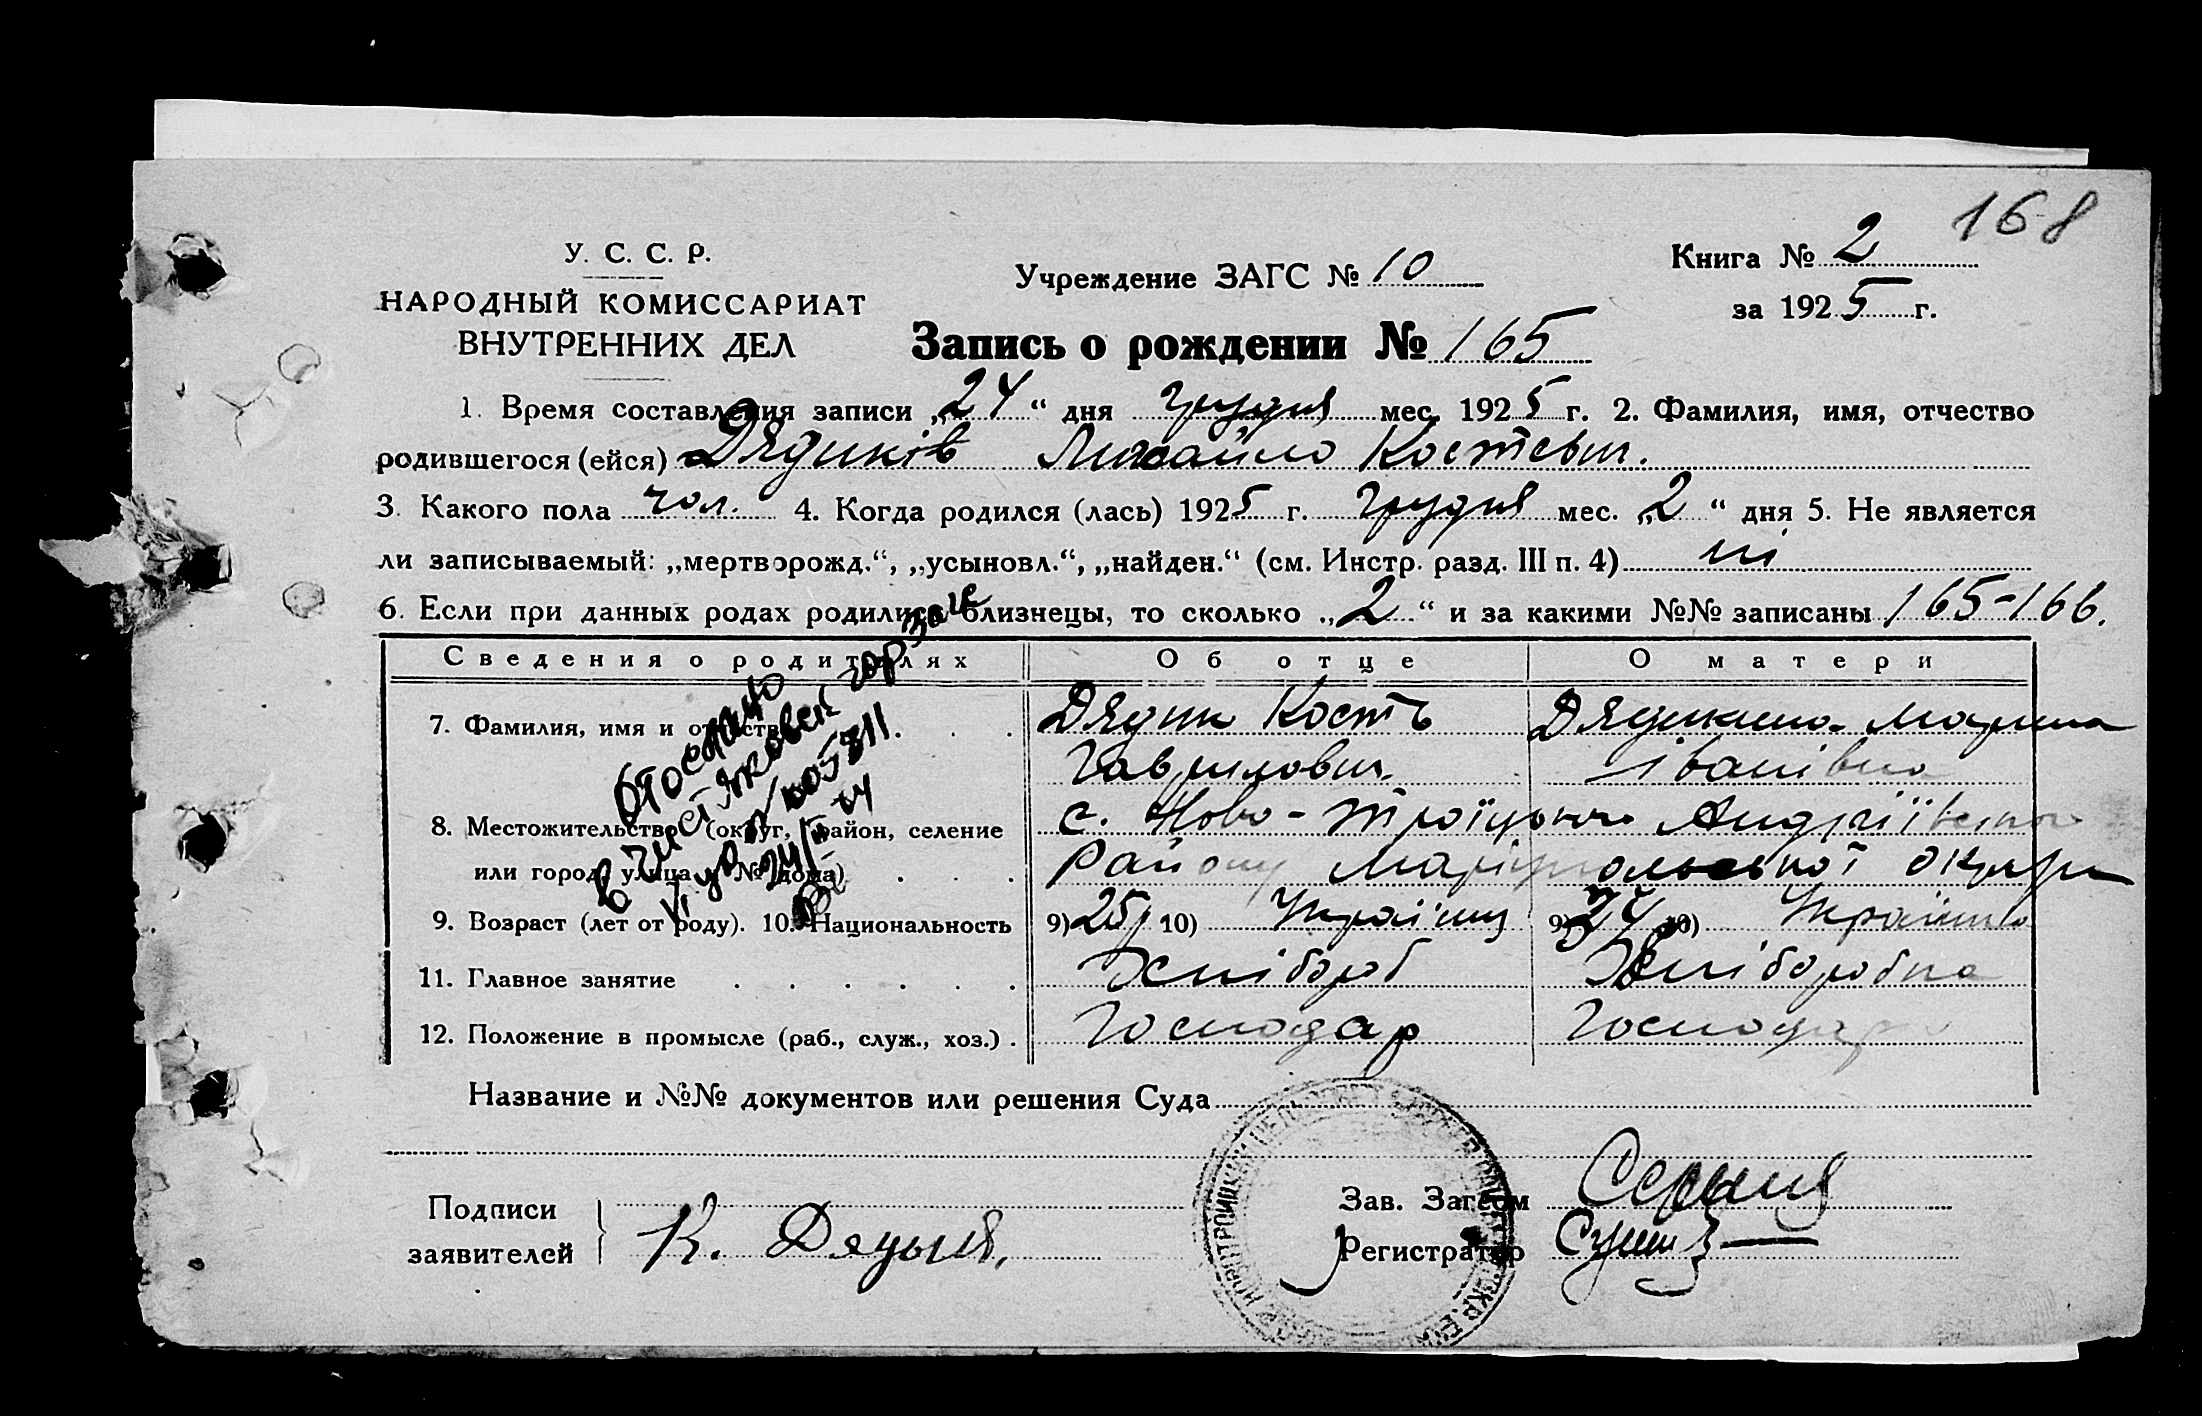 168
У. С. С. Р.
НАРОДНЫЙ КОМИССАРИАТ
ВНУТРЕННИХ ДЕЛ
Учреждение ЗАГС № 10
Книга № 2
за 1925 г.
Запись о рождении № 165
1. Время составления записи „24“ дня Грудня мес. 1925 г. 2. Фамилия, имя, отчество
родившегося (ейся) Дядиків Михайло Костевич.
3. Какого пола чол. 4. Когда родился (лась) 1925 г. Грудня мес. „2“ дня 5. Не является
ли записываемый: „мертворожд.“, „усыновл.“, „найден.“ (см. Инстр. разд. III п. 4) ні
6. Если при данных родах родились близнецы, то сколько „2“ и за какими №№ записаны 165-166.
Сведения о родителях Об отце О матери
7. Фамилия, имя и отчество Дядик Кость Марина
Гаврилович Іванівна
8. Местожительство (округ, район, селение с. Ново-Троїцьке Андріївського
или город, улица и № дома) Району Маріупольської округи
9. Возраст (лет от роду). 10. Национальность 9) 25 10) Українц 9) 24 10) Українка
11. Главное занятие Хлібороб Хліборобка
12. Положение в промысле (раб., служ., хоз.) Господар Господар
Название и №№ документов или решения Суда
Подписи
заявителей
К. Дядык
Зав. Загсом
Регистратор